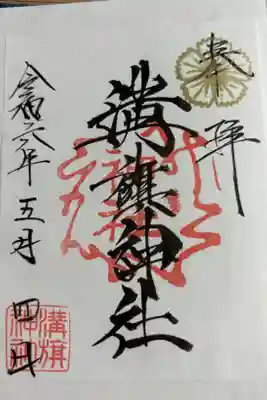 奉拝
溝旗神社
令和六年五月四日
溝旗
神社